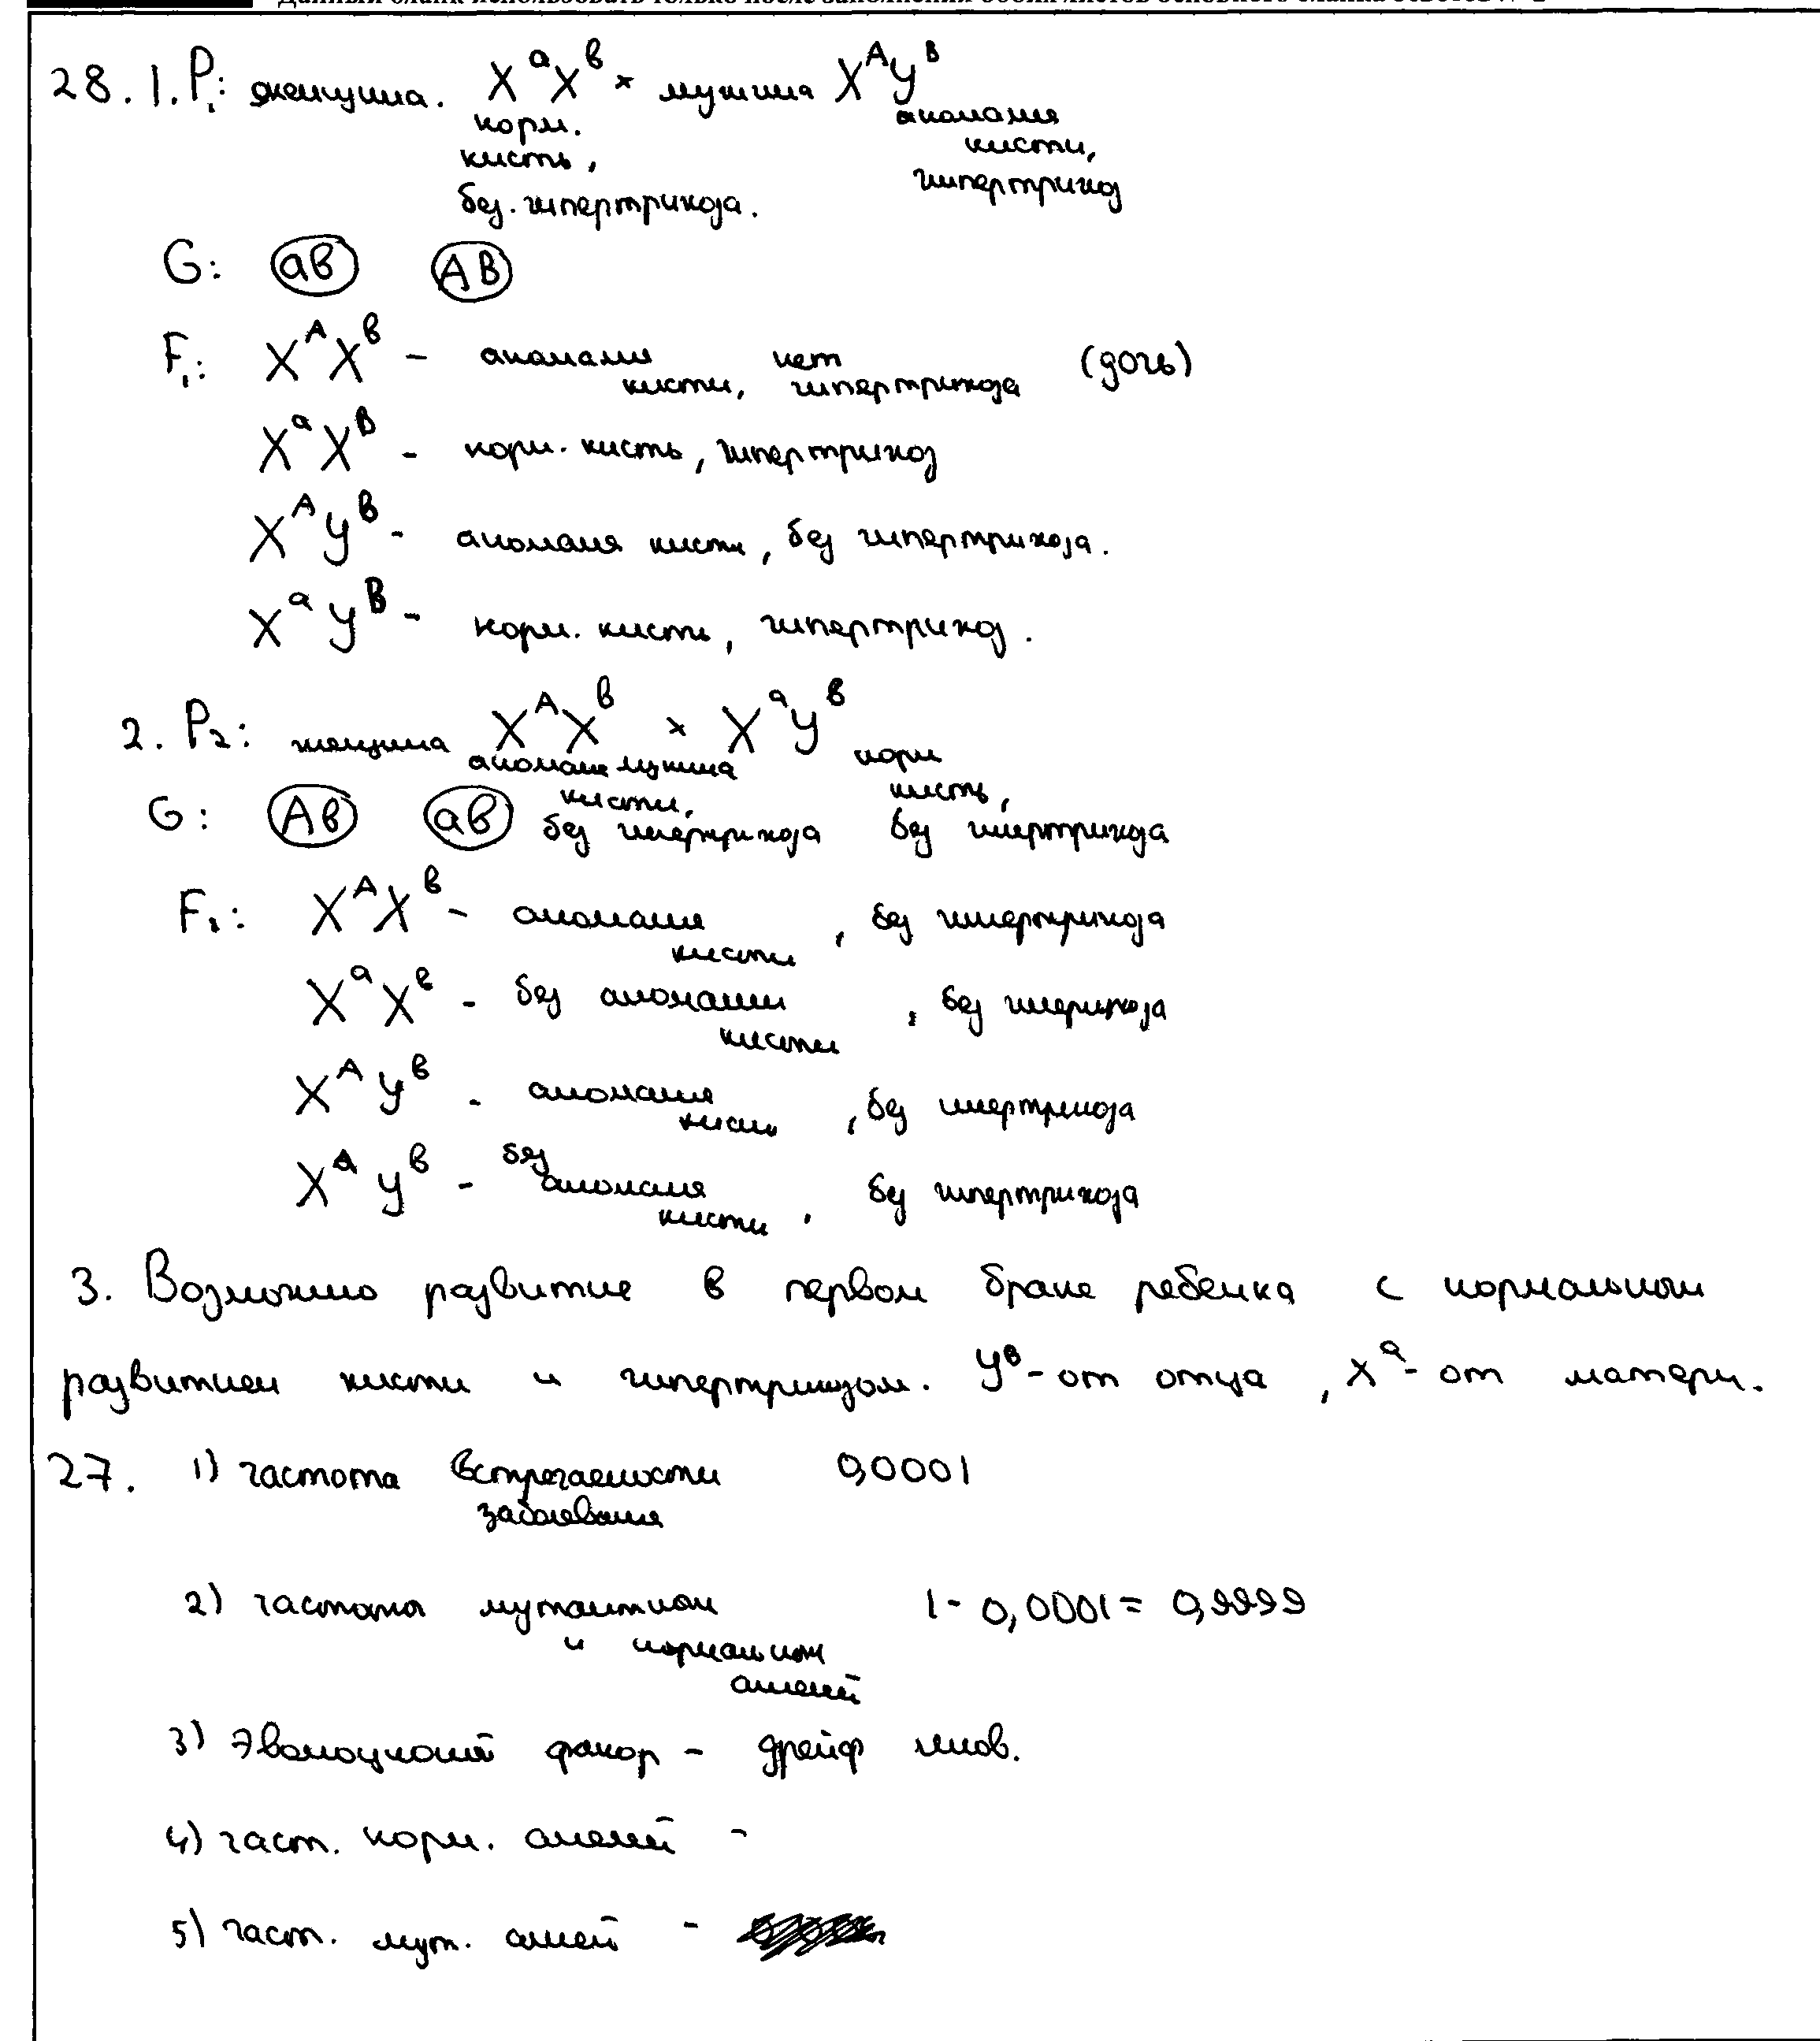 Данный бланк использовать только после заполнения обоих листов основного бланка ответов № 2
28. 1. P₁: женщина. XᵃXᵇ × мужчина XᴬYᴮ
норм. аномалия
кисть, кисти,
без. гипертрихоза. гипертрихоз
G: ав АВ
F₁: XᴬXᵇ - аномалия кисти, нет гипертрихоза (дочь)
XᵃXᴮ - норм. кисть, гипертрихоз
XᴬYᴮ - аномалия кисти, без гипертрихоза.
XᵃYᴮ - норм. кисть, гипертрихоз.
2. P₂: женщина XᴬXᵇ × XᵃYᵇ норм
аномалия мужчина
кисти, кисть,
G: Ав ав без гипертрихоза без гипертрихоза
F₂: XᴬXᵇ - аномалия кисти, без гипертрихоза
XᵃXᵇ - без аномалии кисти, без гипертрихоза
XᴬYᵇ - аномалия кисти, без гипертрихоза
XᵃYᵇ - без аномалия кисти, без гипертрихоза
3. Возможно развитие в первом браке ребенка с нормальном
развитием кисти и гипертрихозом. Yᴮ - от отца, Xᵃ - от матери.
27. 1) частота встречаемости заболевания 0,0001
2) частота мутантном и нормальном аллелей 1 - 0,0001 = 0,9999
3) Эволюционый фактор - дрейф генов.
4) част. норм. аллелей -
5) част. мут. аллей -